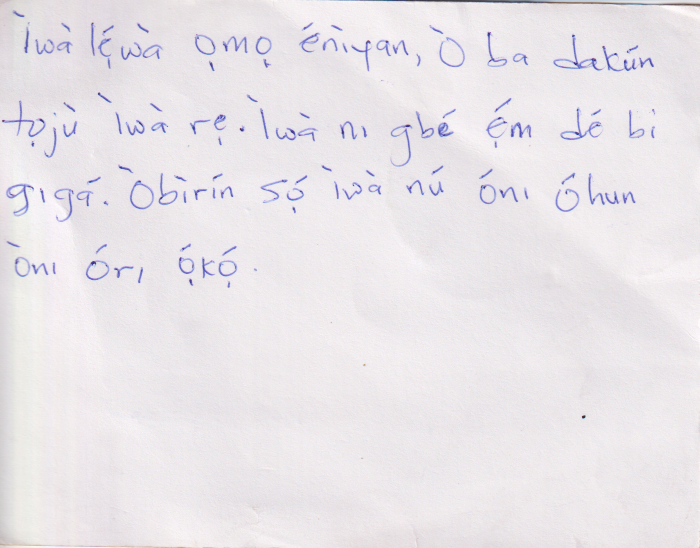 Ìwà lẹ́wà ọmọ éniyan, Ò ba dakún
tọjù Ìwà rẹ. Ìwà nı gbé ẹ́m dé bi
gıgá. Òbìrín sọ́ Ìwà nú ónı óhun
Ònı órı ọ́kọ́.